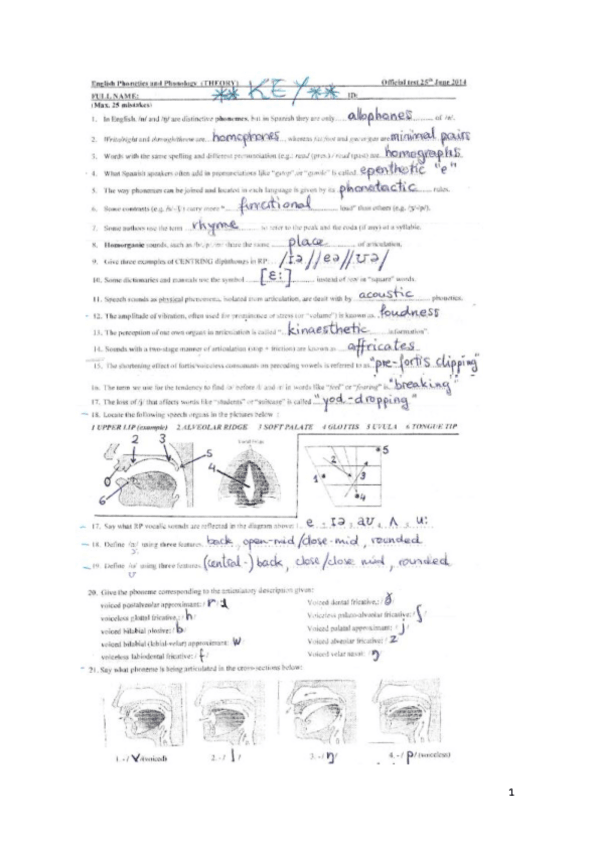 English Phonetics and Phonology (THEORY) Official test 25th June 2014
** KEY **
FULL NAME: ID:
(Max. 25 mistakes)
1. In English, /n/ and /ŋ/ are distinctive phonemes, but in Spanish they are only allophones of /n/.
2. homophones whereas are minimal pairs
3. Words with the same spelling and different pronunciation (e.g.: read (pres.) / read (past) are homographs
4. What Spanish speakers often add in pronunciations like or is called epenthetic "e"
5. The way phonemes can be joined and located in each language is given by its phonotactic rules.
6. Some contrasts carry more " functional load" than others
7. Some authors use the term rhyme to refer to the peak and the coda (if any) of a syllable.
8. Homorganic sounds, such as share the same place of articulation.
9. Give three examples of CENTRING diphthongs in RP: /ɪə//eə//ʊə/
10. Some dictionaries and manuals use the symbol [ɛː] instead of in "square" words.
11. Speech sounds as physical phenomena, isolated from articulation, are dealt with by acoustic phonetics.
12. The amplitude of vibration, often used for prominence or stress (or "volume") is known as loudness
13. The perception of our own organs in articulation is called " kinaesthetic information".
14. Sounds with a two-stage manner of articulation (stop + friction) are known as affricates
15. The shortening effect of fortis/voiceless consonants on preceding vowels is referred to as "pre-fortis clipping"
16. The term we use for the tendency to find in words like "feel" or is "breaking"
17. The loss of /j/ that affects words like "students" or is called "yod-dropping"
18. Locate the following speech organs in the pictures below :
1 UPPER LIP (example) 2 ALVEOLAR RIDGE 3 SOFT PALATE 4 GLOTTIS 5 UVULA 6 TONGUE TIP
2 3 5 6 4 1 2 3 4 5
17. Say what RP vocalic sounds are reflected in the diagram above: e . ɪə, aʊ, ʌ, uː
18. Define using three features. back, open-mid/close-mid, rounded
19. Define using three features. (central-)back, close/close mid, rounded
20. Give the phoneme corresponding to the articulatory description given:
voiced postalveolar approximant: / r Voiced dental fricative: / ð
voiceless glottal fricative: / h Voiceless palato-alveolar fricative: / ʃ
voiced bilabial plosive: / b Voiced palatal approximant: / j
voiced bilabial (labial-velar) approximant: w Voiced alveolar fricative: / z
voiceless labiodental fricative: / f Voiced velar nasal: / ŋ
21. Say what phoneme is being articulated in the cross-sections below:
1.-/ v (voiced) 2.-/ l / 3.-/ ŋ / 4.-/ p / (voiceless)
1